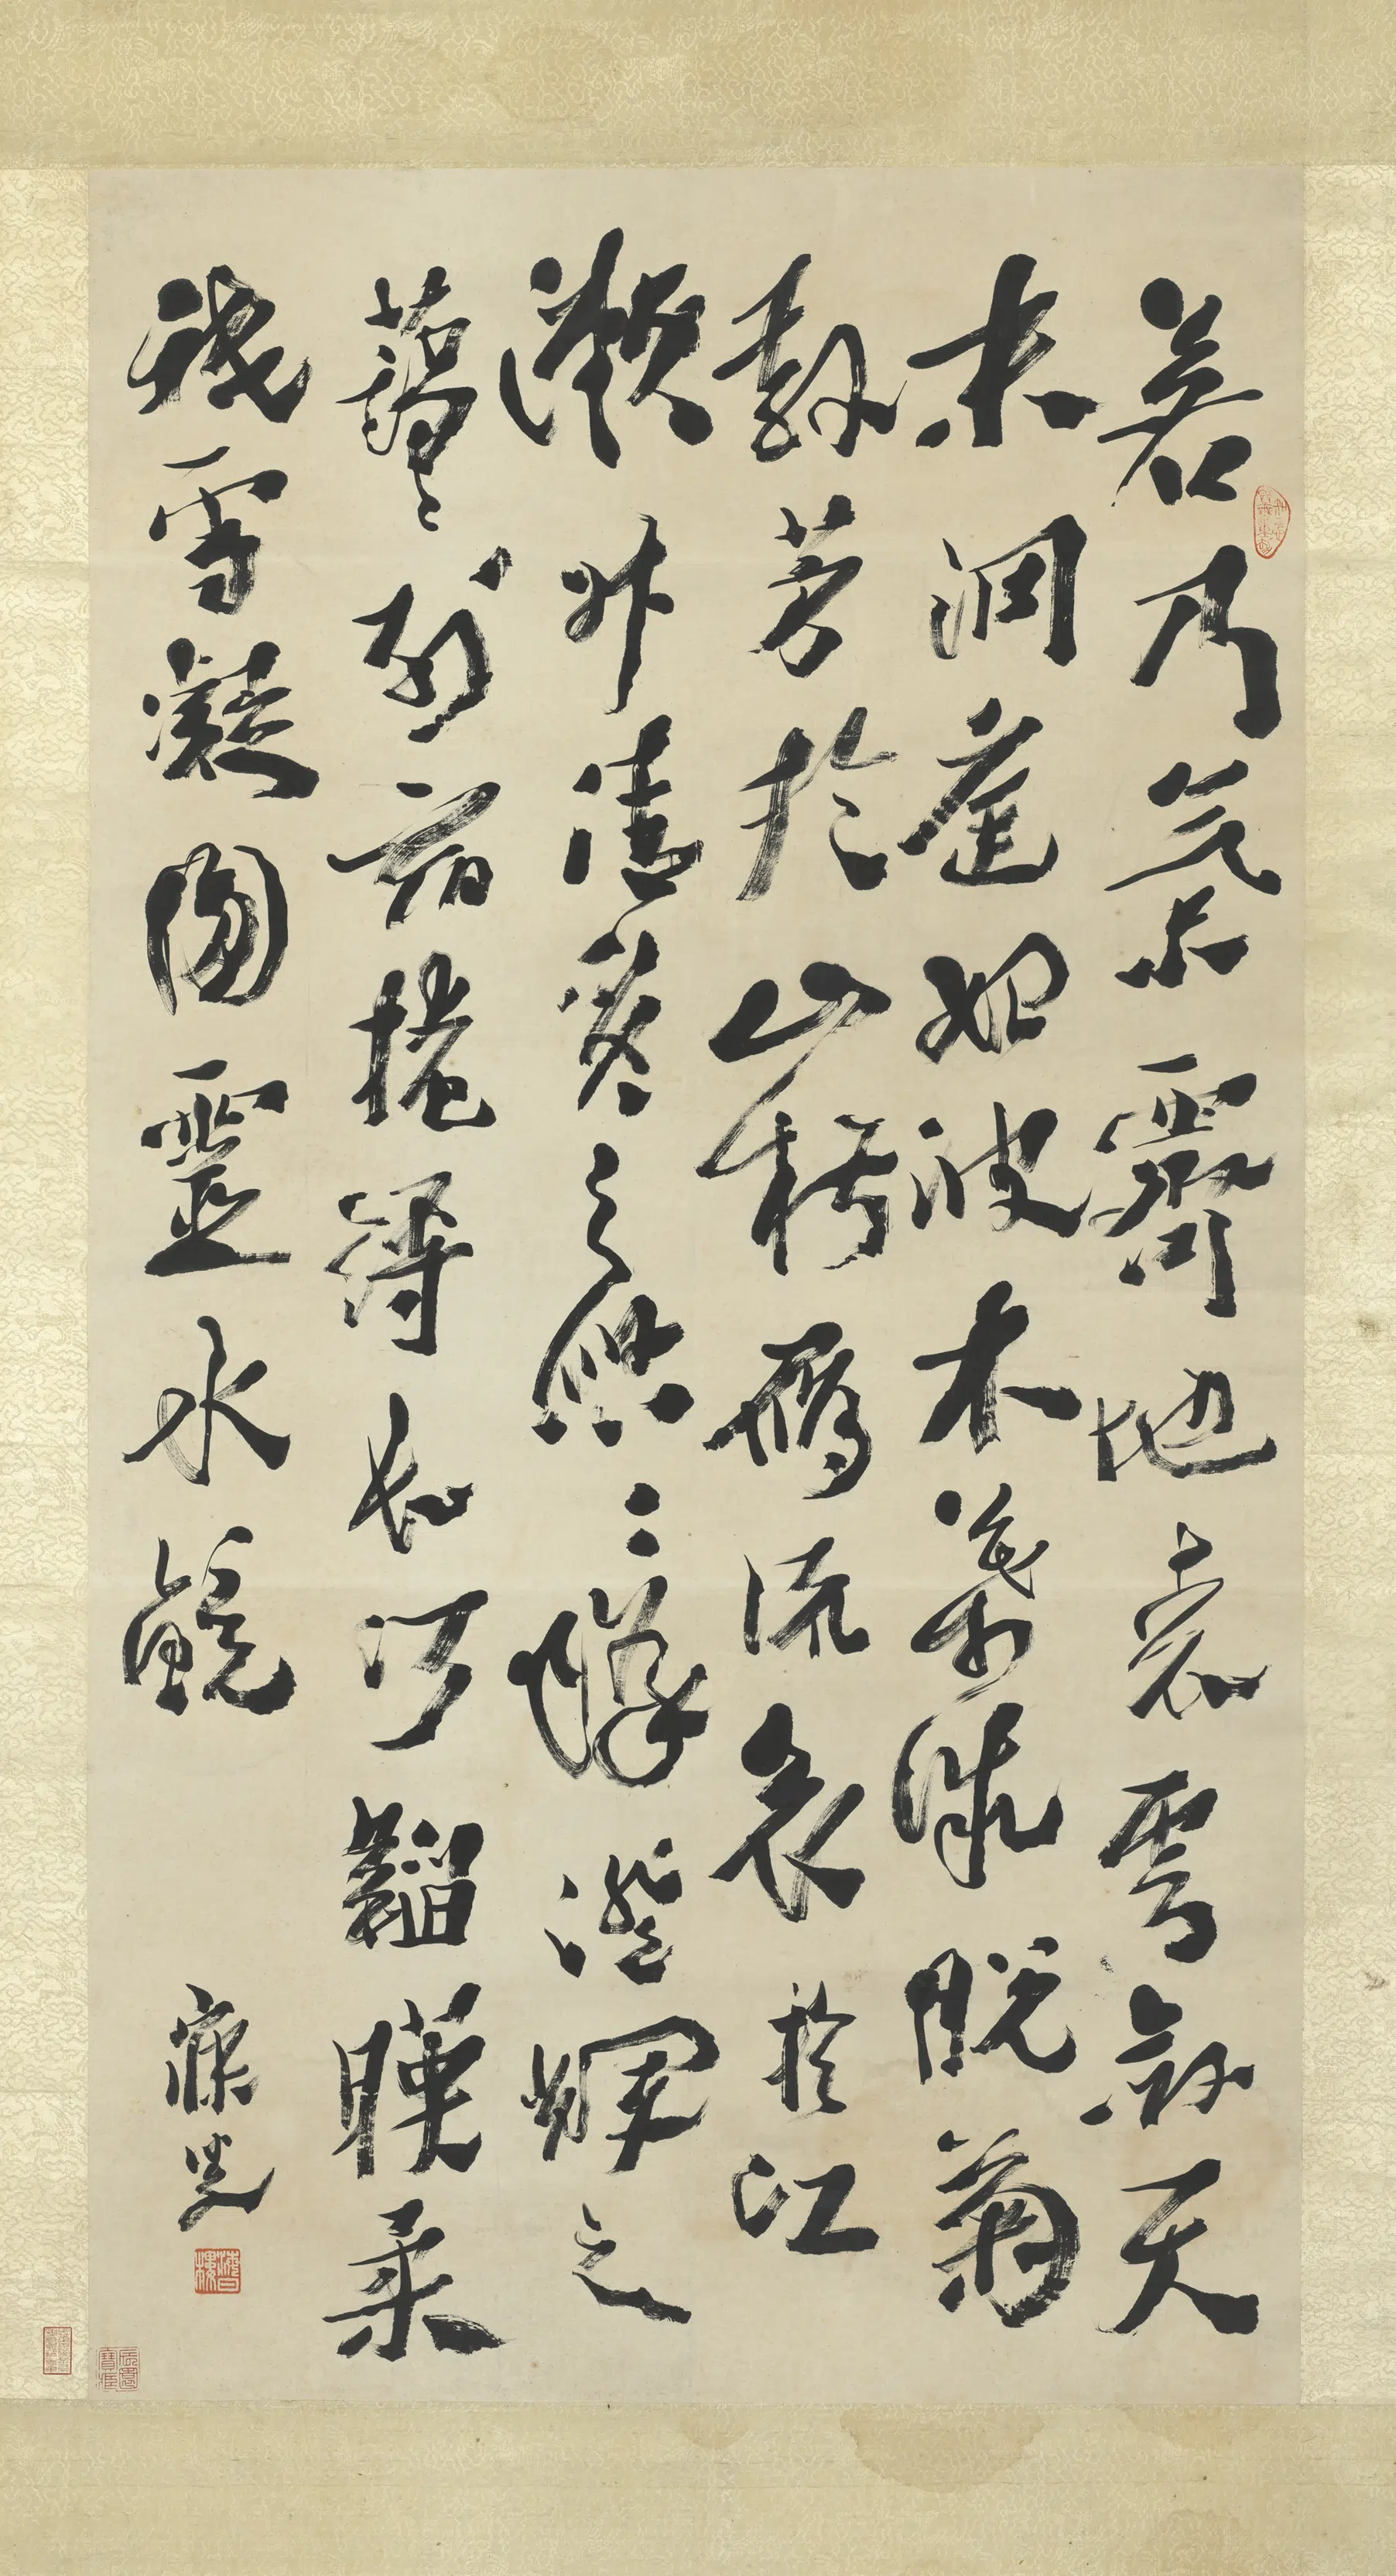 若乃氣霽地表雲斂天
末洞庭始波木葉微脫菊
散芳於山椒鴈流哀於江
瀨升清質之悠々降澄輝之
藹々列宿掩縟長河韜暎柔
祇雪凝圓靈水鏡
寐叟
海日樓